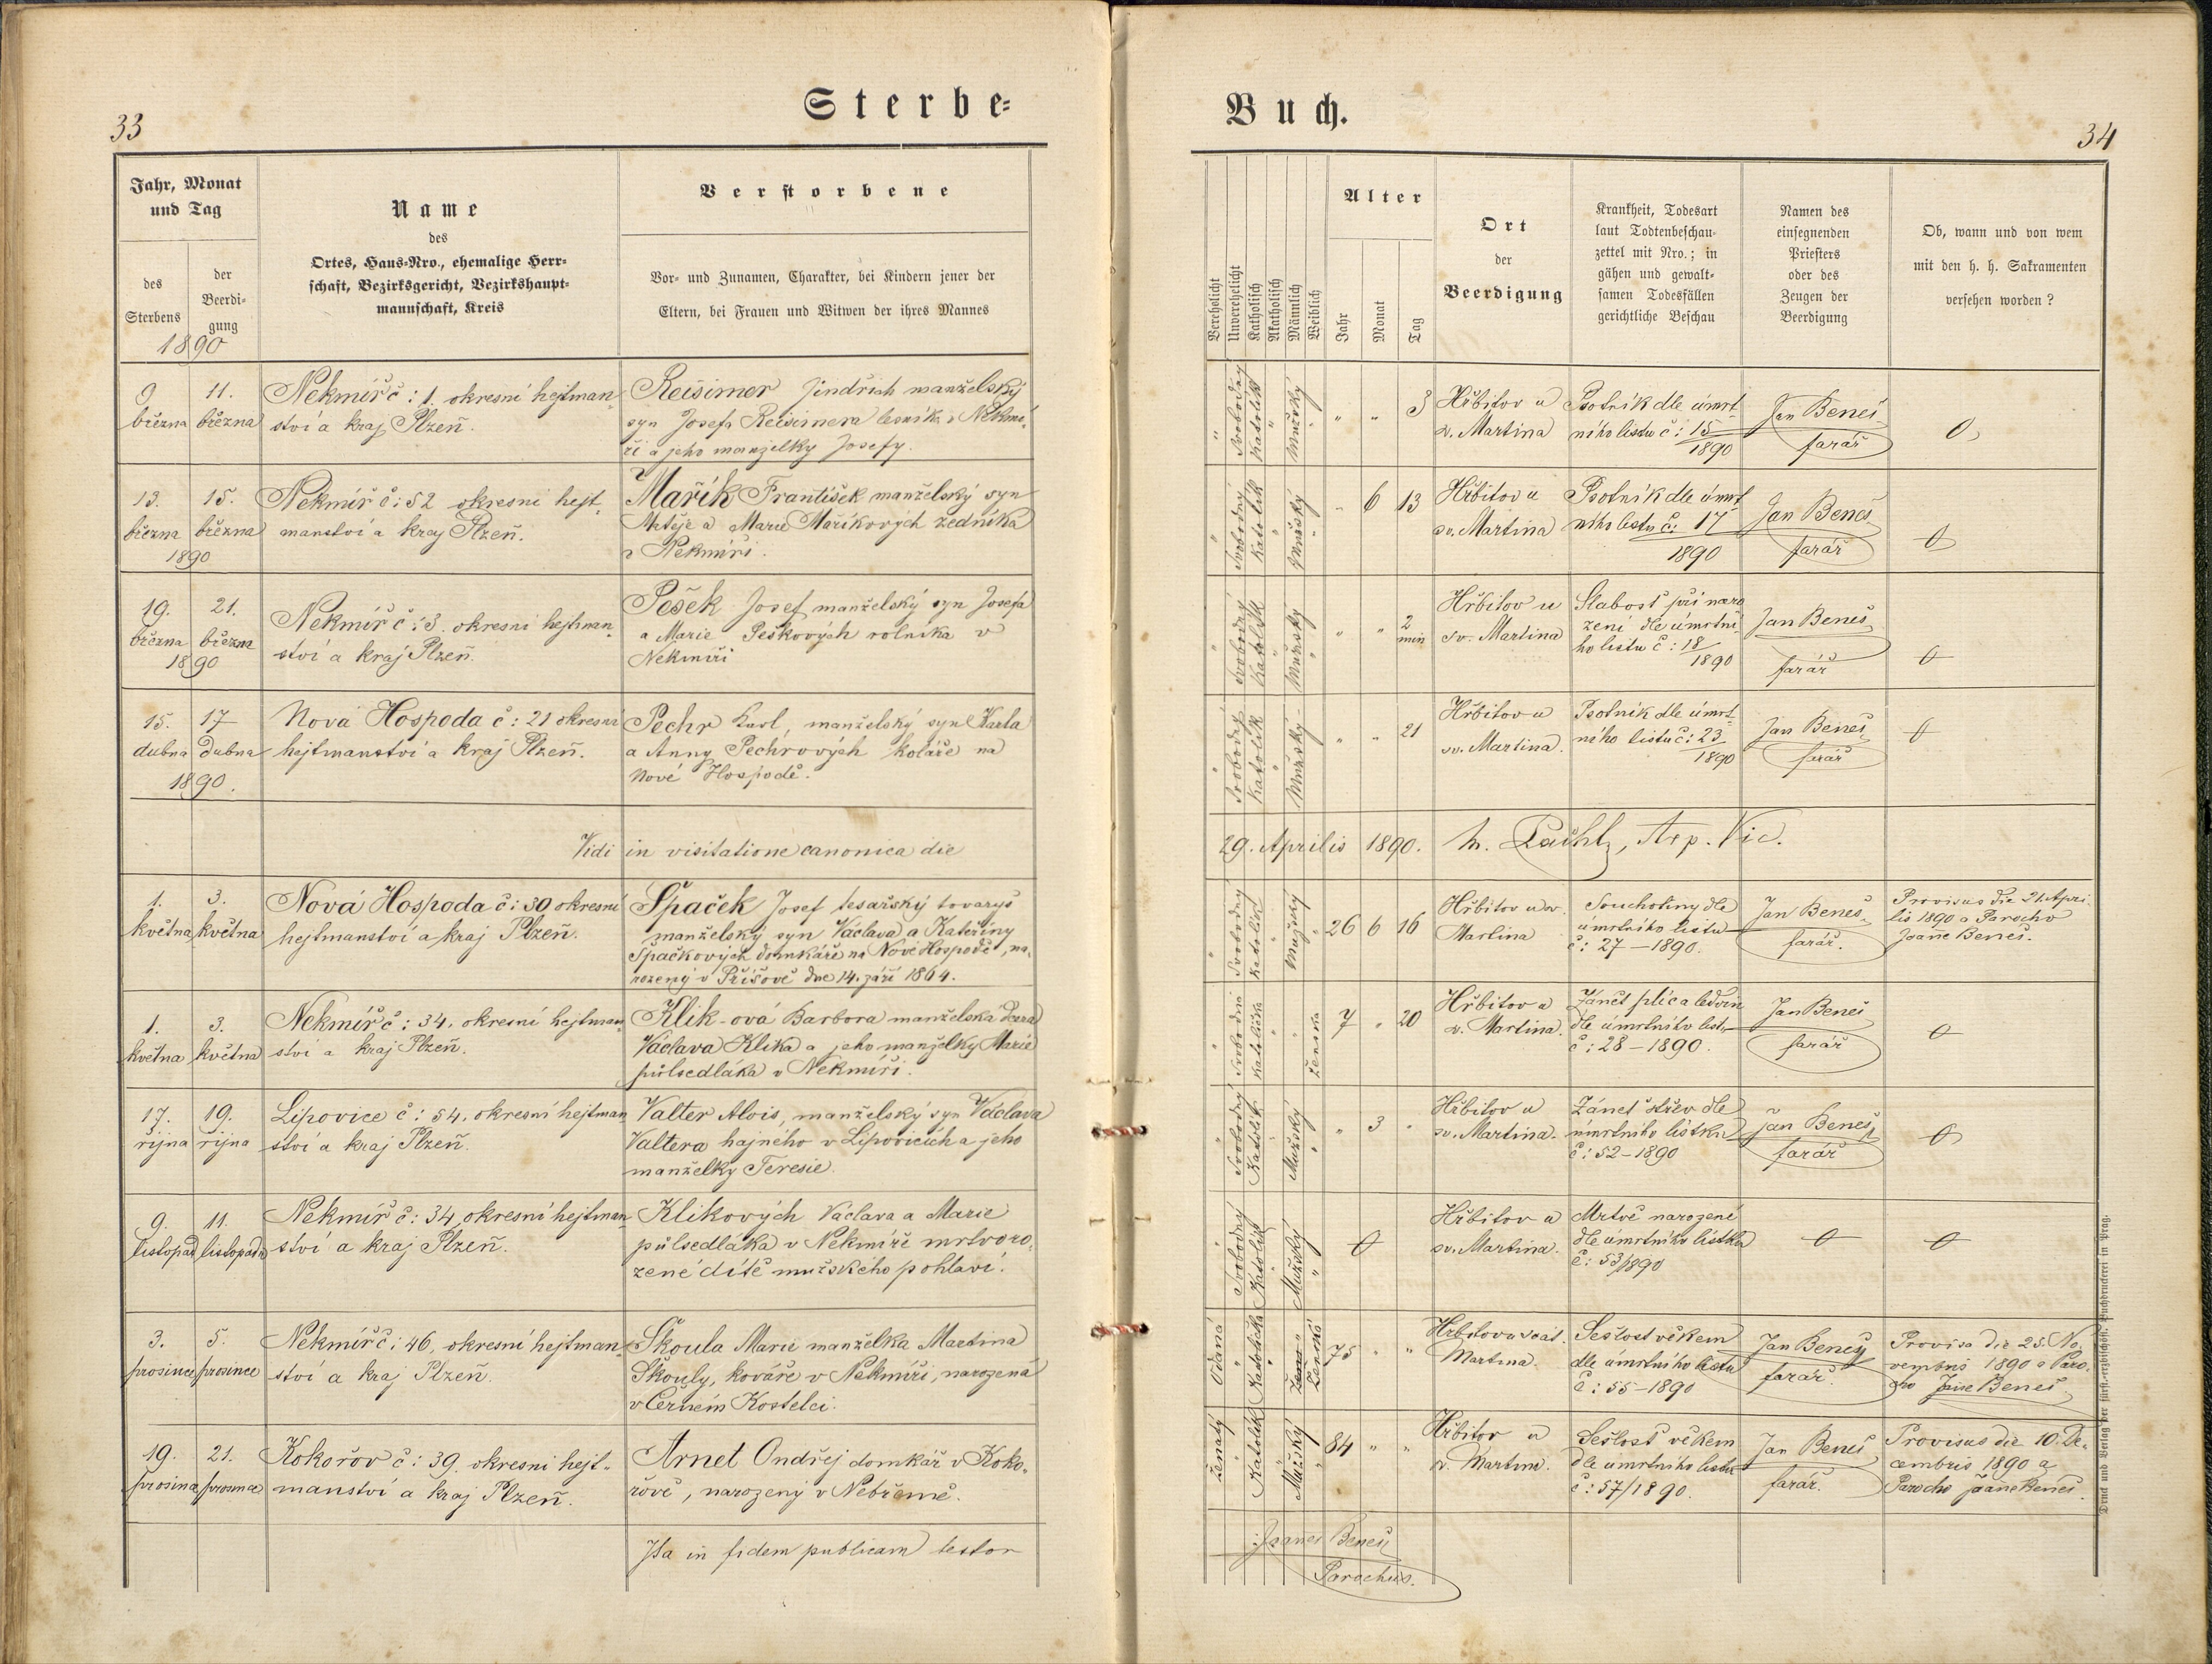 33
Sterbe=
Jahr, Monat
und Tag
des
Sterbens
der
Beerdi-
gung
1890
Name
des
Ortes, Haus-Nro., ehemalige Herr-
schaft, Bezirksgericht, Bezirkshaupt-
mannschaft, Kreis
Verstorbene
Vor- und Zunamen, Charakter, bei Kindern jener der
Eltern, bei Frauen und Witwen der ihres Mannes
9
března
11.
března
Nekmíř č: 1. okresní hejtman-
ství a kraj Plzeň.
Reisimer Jindřich manželský
syn Josefa Reisimera lesníka v Nekmí-
ři a jeho manželky Josefy.
13.
března
15.
března
1890
Nekmíř č: 52 okresní hejt-
manství a kraj Plzeň.
Mařík František manželský syn
Matěje a Marie Maříkových zedníka
v Nekmíři.
19.
března
21.
března
1890
Nekmíř č: 3. okresní hejtman-
ství a kraj Plzeň.
Pešek Josef manželský syn Josefa
a Marie Peškových rolníka v
Nekmíři
15.
dubna
17
dubna
1890.
Nová Hospoda č: 21 okresní
hejtmanství a kraj Plzeň.
Pechr Karl, manželský syn Karla
a Anny Pechrových koláře na
Nové Hospodě.
Vidi in visitatione canonica die
1.
května
3.
května
Nová Hospoda č: 30 okresní
hejtmanství a kraj Plzeň.
Špaček Josef tesařský tovaryš
manželský syn Václava a Kateřiny
Špačkových domkáře na Nové Hospodě, na-
rozený v Příšově dne 14. září 1864.
1.
května
3.
května
Nekmíř č: 34. okresní hejtman-
ství a kraj Plzeň.
Klik-ová Barbora manželská dcera
Václava Klika a jeho manželky Marie
půlsedláka v Nekmíři.
17.
října
19.
října
Lipovice č: 54. okresní hejtman-
ství a kraj Plzeň.
Valter Alois, manželský syn Václava
Valtera hajného v Lipovicích a jeho
manželky Teresie.
9.
listopad
11.
listopadu
Nekmíř č: 34 okresní hejtman-
ství a kraj Plzeň.
Klikových Václava a Marie
půlsedláka v Nekmíře mrtvoro-
zené dítě mužského pohlaví.
3.
prosince
5.
prosince
Nekmíř č: 46. okresní hejtman-
ství a kraj Plzeň.
Škoula Marie manželka Martina
Škouly, kováře v Nekmíři, narozená
v Černém Kostelci.
19.
prosince
21.
prosince
Kokořov č: 39. okresní hejt-
manství a kraj Plzeň.
Arnet Ondřej domkář v Koko-
řově, narozený v Nebřemě.
Ita in fidem publicam testor
Buch.
34
Verehelicht
Unverehelicht
Katholisch
Akatholisch
Männlich
Weiblich
Alter
Jahr
Monat
Tag
Ort
der
Beerdigung
Krankheit, Todesart
laut Todtenbeschau-
zettel mit Nro.; in
gähen und gewalt-
samen Todesfällen
gerichtliche Beschau
Namen des
einsegnenden
Priesters
oder des
Zeugen der
Beerdigung
Ob, wann und von wem
mit den h. h. Sakramenten
versehen worden?
" Svobodný Katolík " Mužský "
" " 3
Hřbitov u
sv. Martina
Psotník dle úmrt-
ního listu č: 15
1890
Jan Beneš
farář
0
" Svobodný Katolík " Mužský "
" 6 13
Hřbitov u
sv. Martina
Psotník dle úmrt-
ního listu č: 17
1890
Jan Beneš
farář
0
" Svobodný Katolík " Mužský "
" " 2
min
Hřbitov u
sv. Martina
Slabost při naro
zení dle úmrtní-
ho listu č: 18
1890
Jan Beneš
farář
0
" Svobodný Katolík " Mužský -
" " 21
Hřbitov u
sv. Martina.
Psotník dle úmrt-
ního listu č: 23
1890
Jan Beneš
farář
0
29. Aprilis 1890.
Vic.
" Svobodný Katolík " Mužský "
26 6 16
Hřbitov u sv.
Martina
Souchotiny dle
úmrtního listu
č: 27 - 1890.
Jan Beneš
farář.
Provisus die 21. Apri-
lis 1890 a Parocho
Joane Beneš.
" Svobodná Katolička " " Ženská
7 " 20
Hřbitov u
sv. Martina.
Zánět plic a ledvin
dle úmrtního listu
č: 28 - 1890.
Jan Beneš
farář
0
" Svobodný Katolík " Mužský "
" 3 "
Hřbitov u
sv. Martina.
Zánět střev dle
úmrtního lístku
č: 52 - 1890
Jan Beneš
farář
0
" Svobodný Katolík " Mužský "
0
Hřbitov u
sv. Martina.
Mrtvě narozené
dle úmrtního lístku
č: 53/1890
0
0
Vdaná " Katolička " Ženská
75 " "
Hřbitov u svat.
Martina.
Sešlost věkem
dle úmrtního listu
č: 55 - 1890
Jan Beneš
farář.
Provisa die 25. No-
vembris 1890 a Paro-
cho Joane Beneš
Ženatý " Katolík " Mužský "
84 " "
Hřbitov u
sv. Martina.
Sešlost věkem
dle úmrtního listu
č: 57/1890.
Jan Beneš
farář.
Provisus die 10. De-
cembris 1890 a
Parocho Joane Beneš
Joanes Beneš
Parochus.
Druck und Verlag der fürst.-erzbischöfl. Buchdruckerei in Prag.